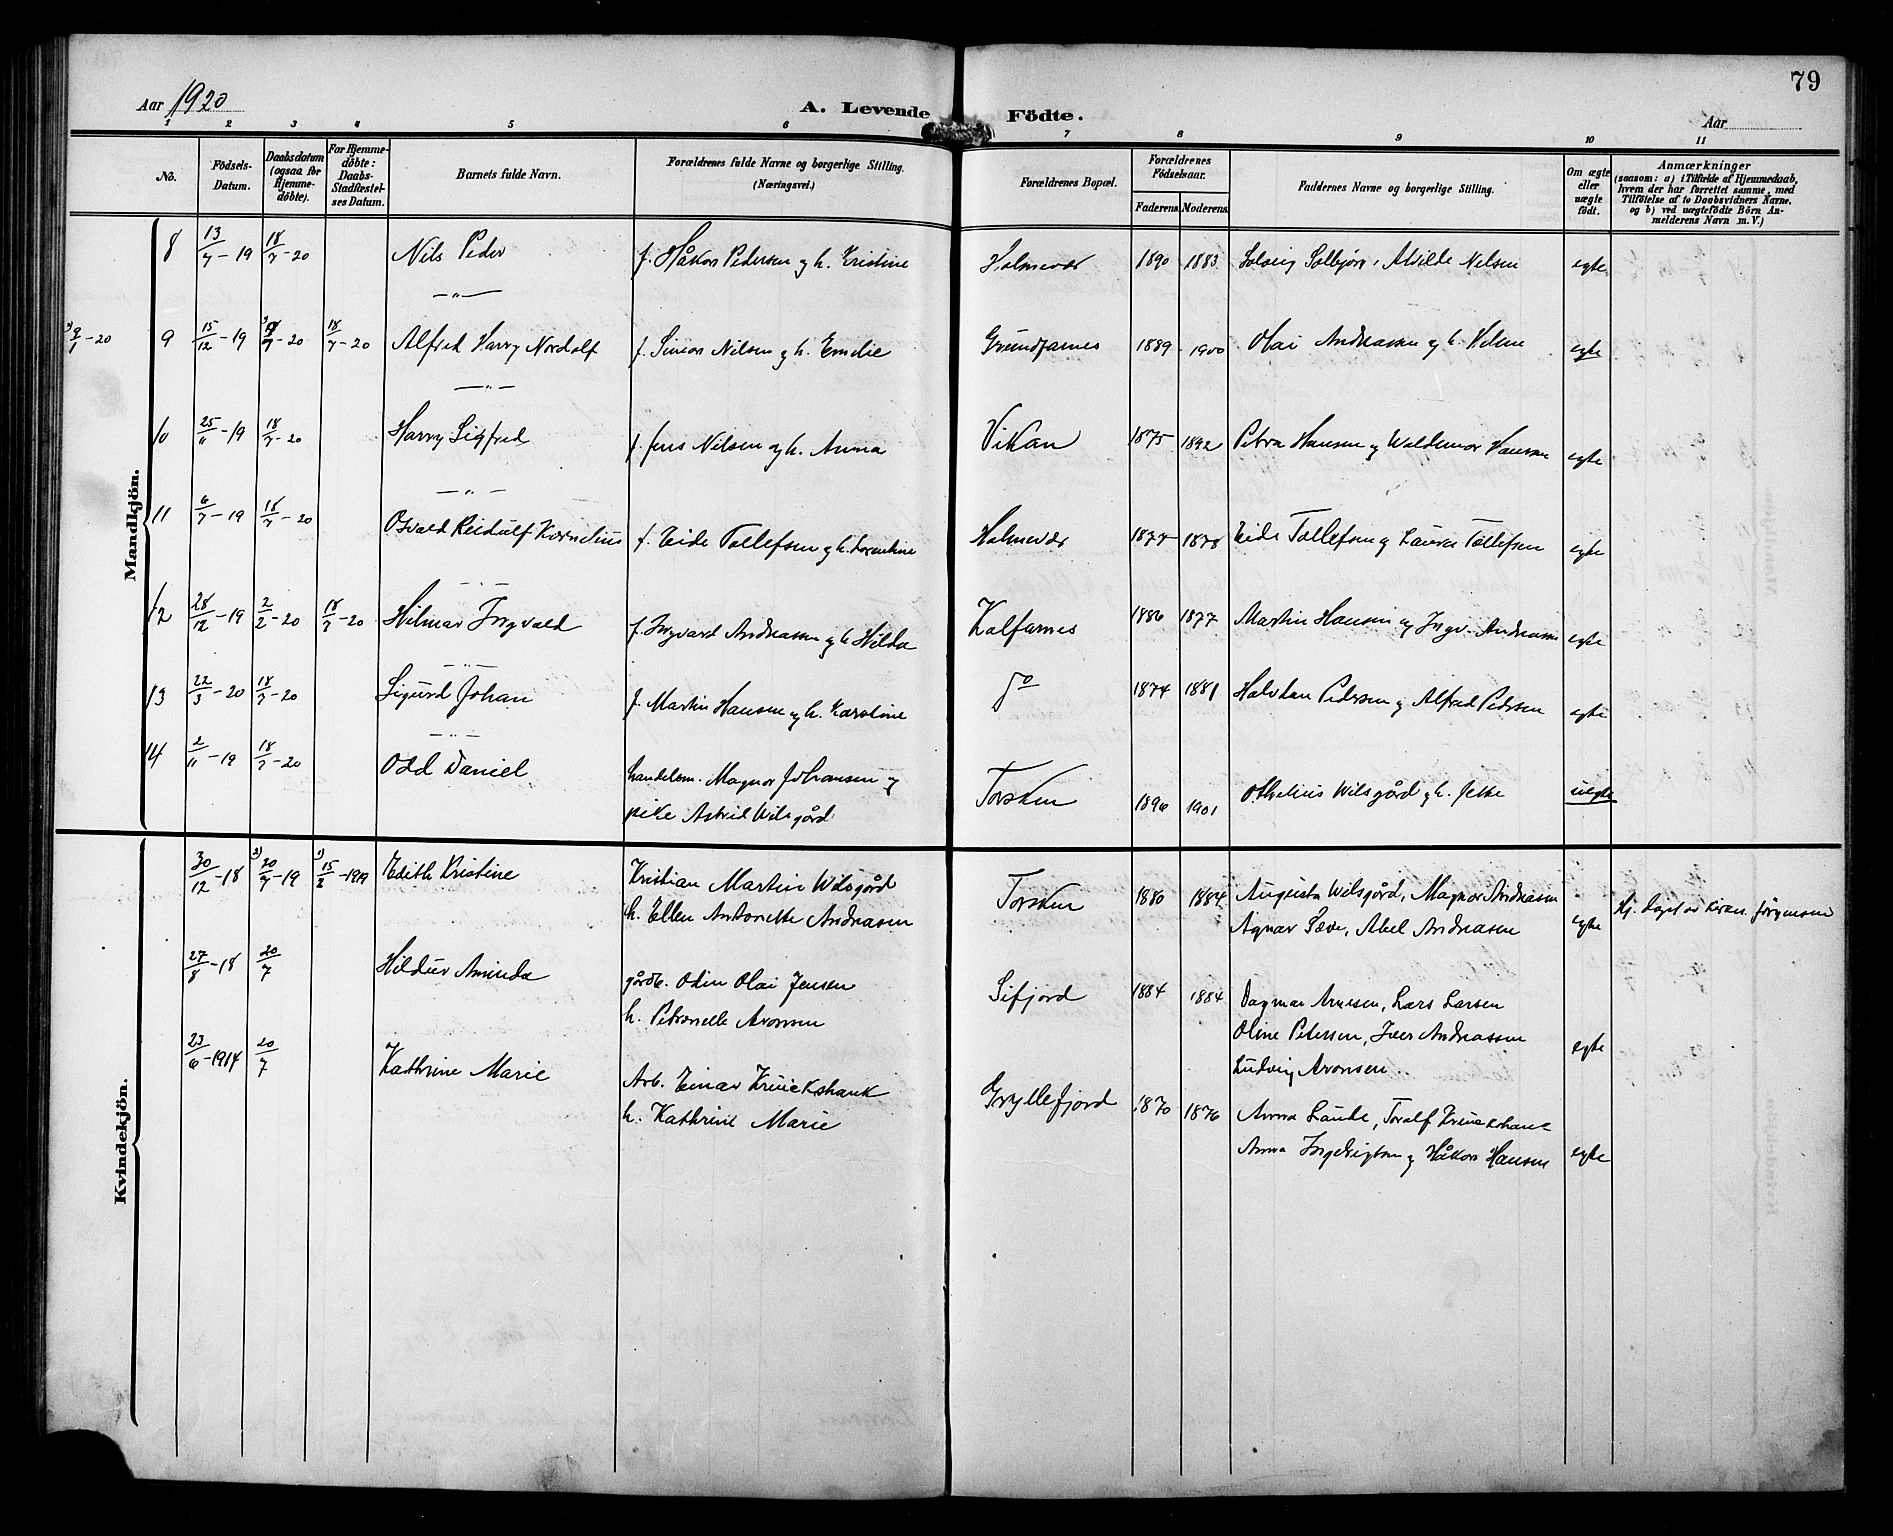 79
Aar 1920
A. Levende Födte.
Aar
1 2 3 4 5 6 7 8 9 10 11
No.
Födsels-Datum.
Daabsdatum (ogsaa for Hjemme-döbte).
For Hjemme-döbte: Daabs-Stadfæstel-ses Datum.
Barnets fulde Navn.
Forældrenes fulde Navne og borgerlige Stilling.
(Næringsvei.)
Forældrenes Bopæl.
Forældrenes Födselsaar.
Faderens. Moderens.
Faddernes Navne og borgerlige Stilling.
Om ægte eller uægte födt.
Anmærkninger
(saasom: a) i Tilfælde af Hjemmedaab, hvem der har forrettet samme, med Tilföielse af to Daabsvidners Navne, og b) ved uægtefödte Börn An-melderens Navn m. V.)
Mandkjön.
8 13/7-19 18/7-20 Nils Peder f. Håkon Pedersen og h. Kristine Holmevær 1890 1883 Solveig Solbjørg, Alvilde Nelsen egte
—"—
3) 9/1-20 9 15/12-19 18/7-20 Alfred Harry Nordolf f. Simon Nilsen og h. Emelie Grundfarnes 1889 1900 Olai Andreassen og h. Helene egte
—"—
10 25/11-19 18/7-20 Harry Sigfred f. Jens Nilsen og h. Anna Vikan 1875 1892 Petra Hansen og Waldemar Hansen egte
—"—
11 6/7-19 18/7-20 Osvald Reidulf Kornelius f. Eide Tollefsen og h. Lorentine Holmevær 1877 1878 Eide Tollefsen og Laura Tollefsen egte
—"—
12 28/12-19 2/2-20 18/7-20 Hilmar Ingvald f. Ingvard Andreassen og h. Hilda Kalfarnes 1886 1877 Martin Hansen og Ingv. Andreassen egte
—"—
13 22/3-20 18/7-20 Sigurd Johan f. Martin Hansen og h. Karstine do 1874 1881 Halvdan Pedersen og Alfred Pedersen egte
—"—
14 2/11-19 18/7-20 Odd Daniel handelsm. Magnor Johansen og
pike Astrid Wilsgård Torsken 1896 1901 Othelius Wilsgård og h. uegte
Kvindekjön.
30/12-18 2) 20/7-19 1) 15/2-1919 Edith Kristine Kristian Martin Wilsgård Torsken 1880 1884 Augusta Wilsgård, Magnor Andreasen
h. Ellen Antonette Andreasen Agnar Sæve, Abel Andreasen egte Hj. døpt av Jörgensen
27/8-18 20/7 Hildur Aminda gårdb. Odin Olai Jensen Sifjord 1884 1884 Dagmar Arnesen, Lars Larsen
h. Petronelle Aronsen Oline Petersen, Iver Andreassen
Ludvig Aronsen. egte
23/6-1914 20/7 Kathrine Marie Arb. Einar Kruickshank Gryllefjord 1870 1876 Anna Lande, Toralf Kruickshank
h. Kathrine Marie Anna Ingebrigtsen og Håkon Hansen egte